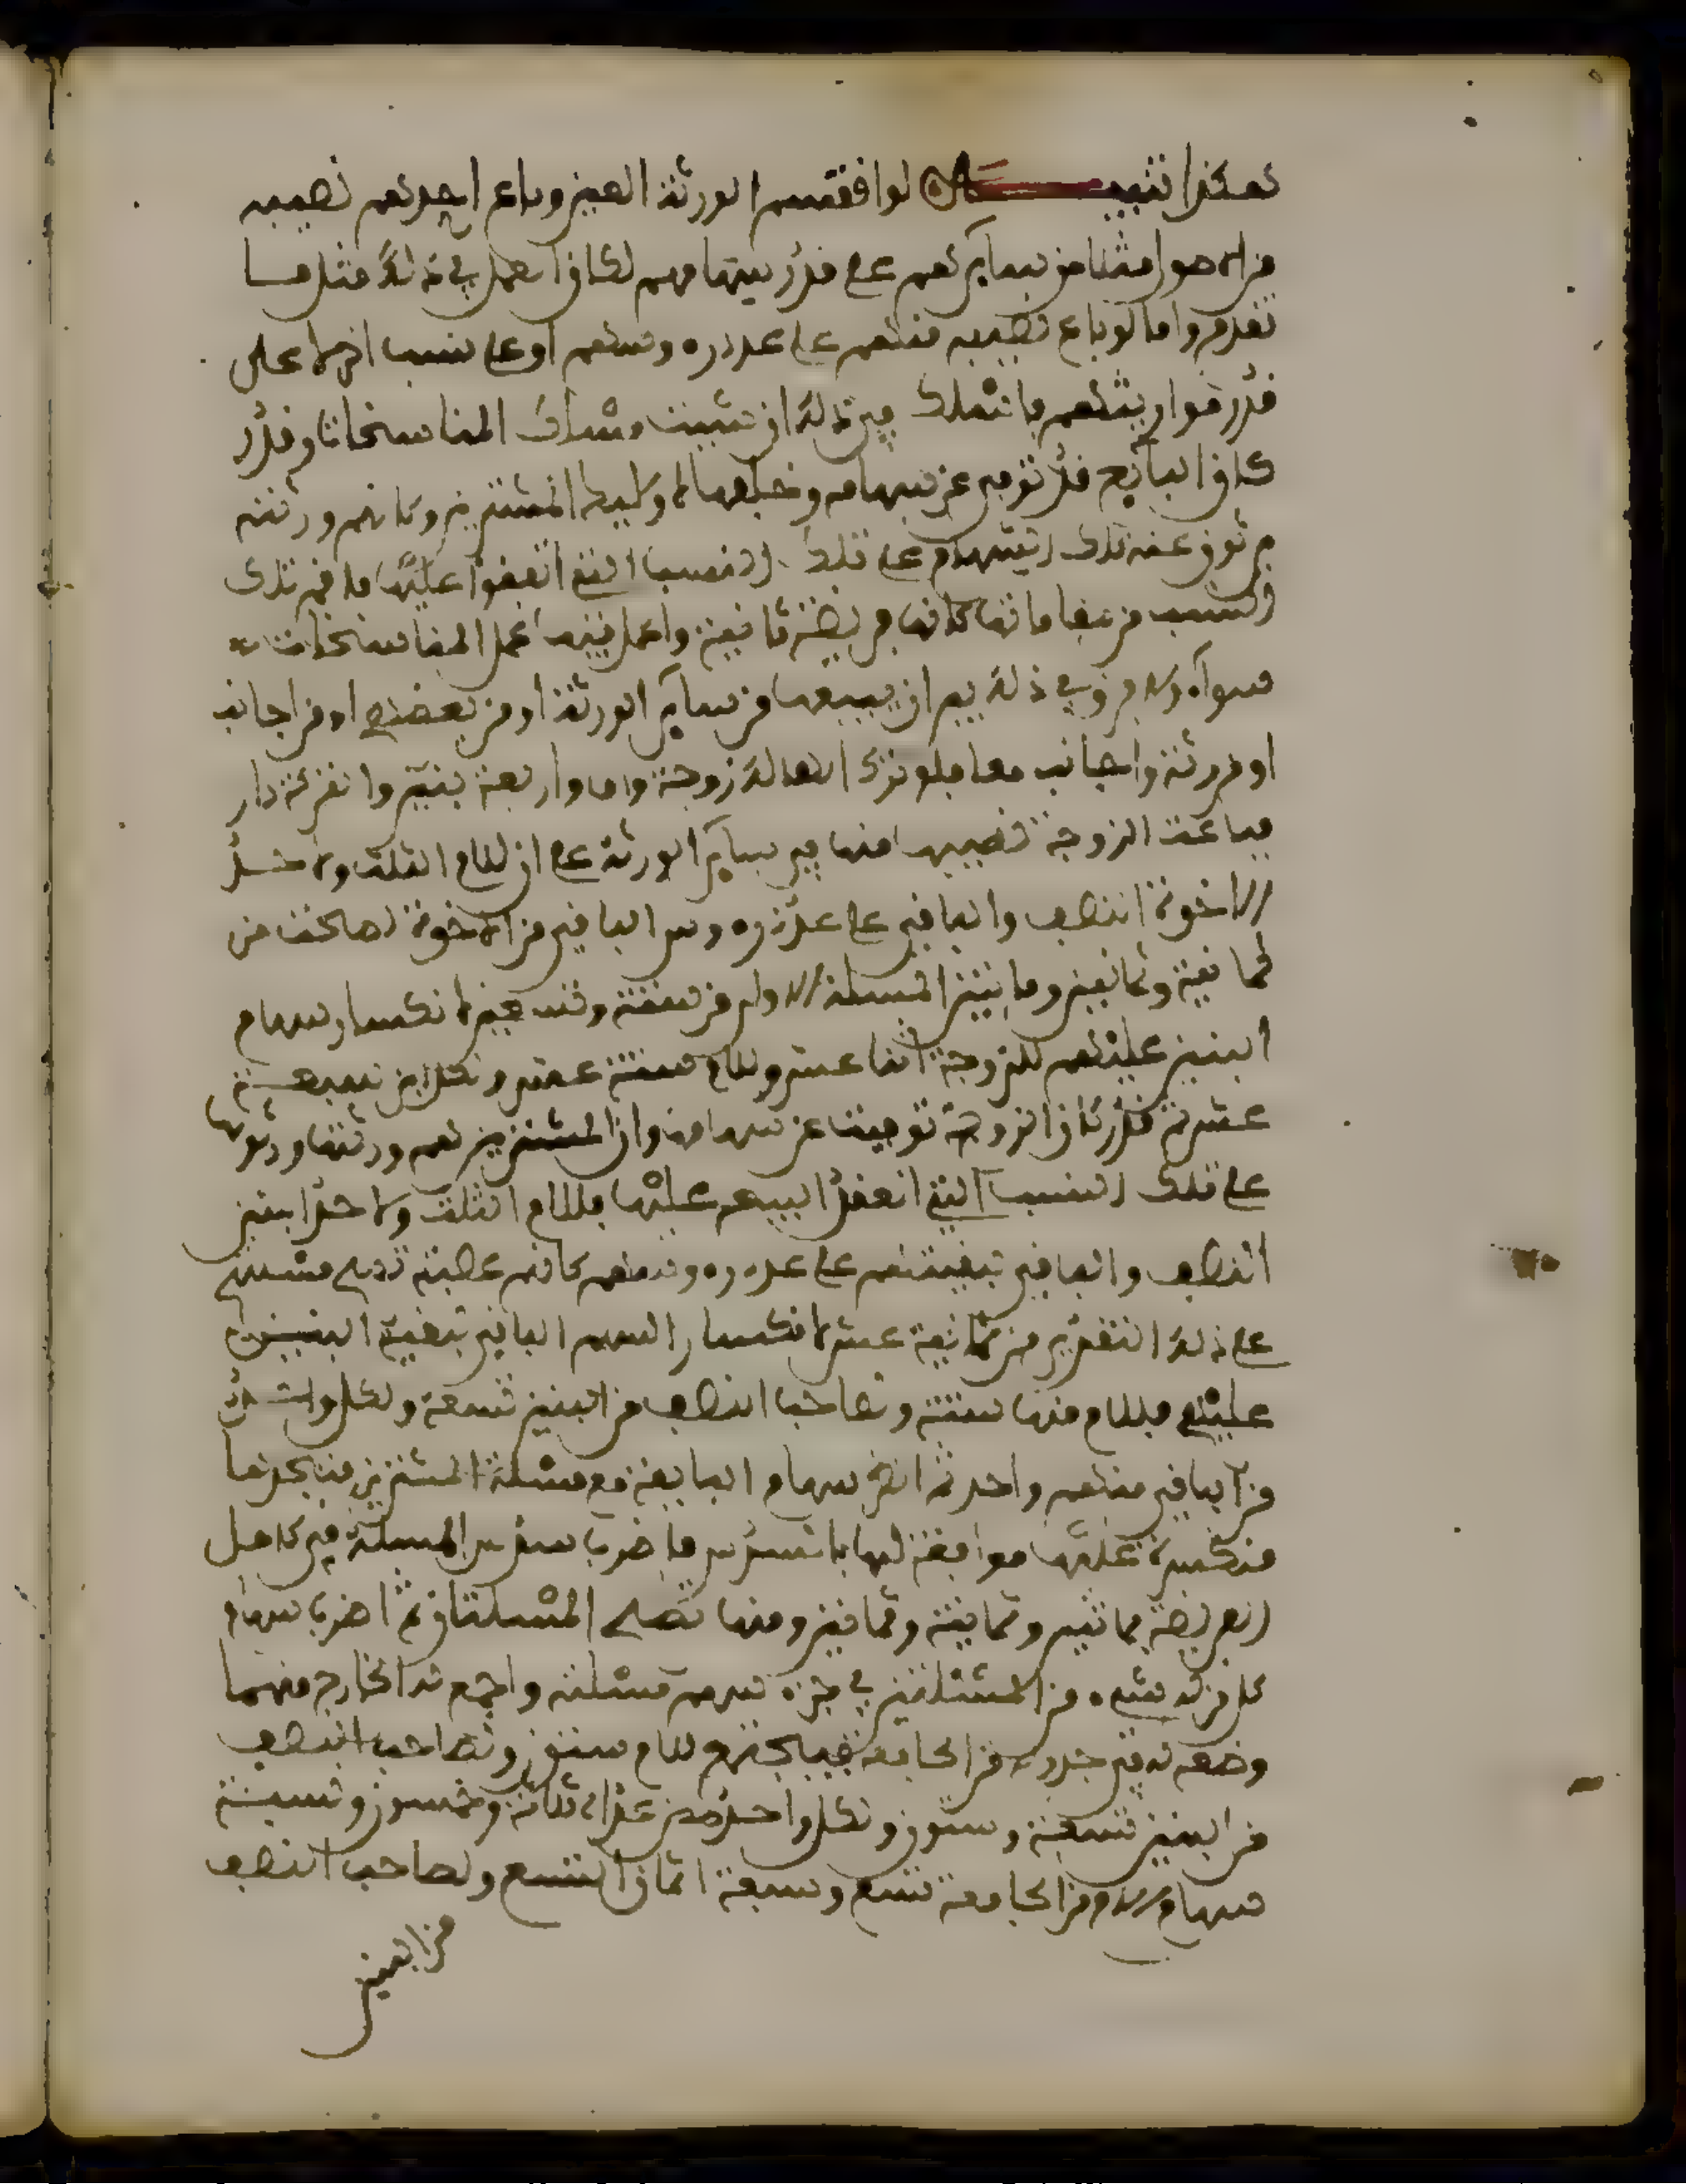 هكذا تنبيهان لو اقتسم الورثة العين وباع احدهم نصيبه
من الاصول مثلا من سائرهم على قدر سهامهم لكان العمل في ذلك مثل ما
تقدم واما لو باع نصيبه منهم على عدد رءوسهم او على نسب اخر لا على
قدر مواريثهم فاتسلك في ذلك ان شيت مسلك المناسخات وقدر
كان البايع قد توفي عن سهامه وخلفها لاوليك المشترين وكانهم ورثته
وتوزعت تلك السهام على تلك النسب التي اتفقوا عليها فاقم تلك
النسب من مقاماتها كانها فريضة ثانية واعمل فيها عمل المناسخات
سواء ولا فرق في ذلك بين ان يبيعها من ساير الورثة او من بعضهم او من اجانب
او من ورثة واجانب معا فلو ترك الهالك زوجة واما واربعة بنين وتركة دار
فباعت الزوجة نصيبها منها من ساير الورثة على ان للام الثلث ولاحد
الاخوة النصف والباقي على عدد رءوس الباقين من الاخوة لصحت من
ثمانية وثمانين ومايتين المسلة الاولى من ستة وتسعين لانكسار سهام
البنين عليهم للزوجة اثنا عشر وللام ستة عشر ولكل ابن سبعة
عشر ثم قدر كان الزوجة توفيت عن سهامها وان المشترين هم ورثتها ورثوها
على تلك النسب التي انعقد البيع عليها فللام الثلث ولاحد البنين
النصف والباقي لبقيتهم على عدد رءوسهم كانهم عصبة تصح مسئلتهم
على ذلك التقدير من ثمانية عشر لانكسار السهم الباقي لبقية البنين
عليهم فللام منها ستة ولصاحب النصف من البنين تسعة ولكل واحد
من الباقين منهم واحد ثم انظر سهام البايعة مع مسئلة المشترين فتجدها
منكسرة عليها موافقة لها بالسدس فاضرب سدس المسلة في كامل
الفريضة بمائتين وثمانية وثمانين ومنها تصح المسئلتان ثم اضرب سهام
كل من له شيء من المسئلتين في جزء سهم مسئلته واجمع له الخارج منهما
وضعه له في جدوله من الجامعة فيجتمع للام ستون ولصاحب النصف
من البنين تسعة وستون ولكل واحد ممن عداه ثلاثة وخمسون ونسبة
سهام الام من الجامعة تسع وسبعة اثمان التسع ولصاحب النصف
من البنين